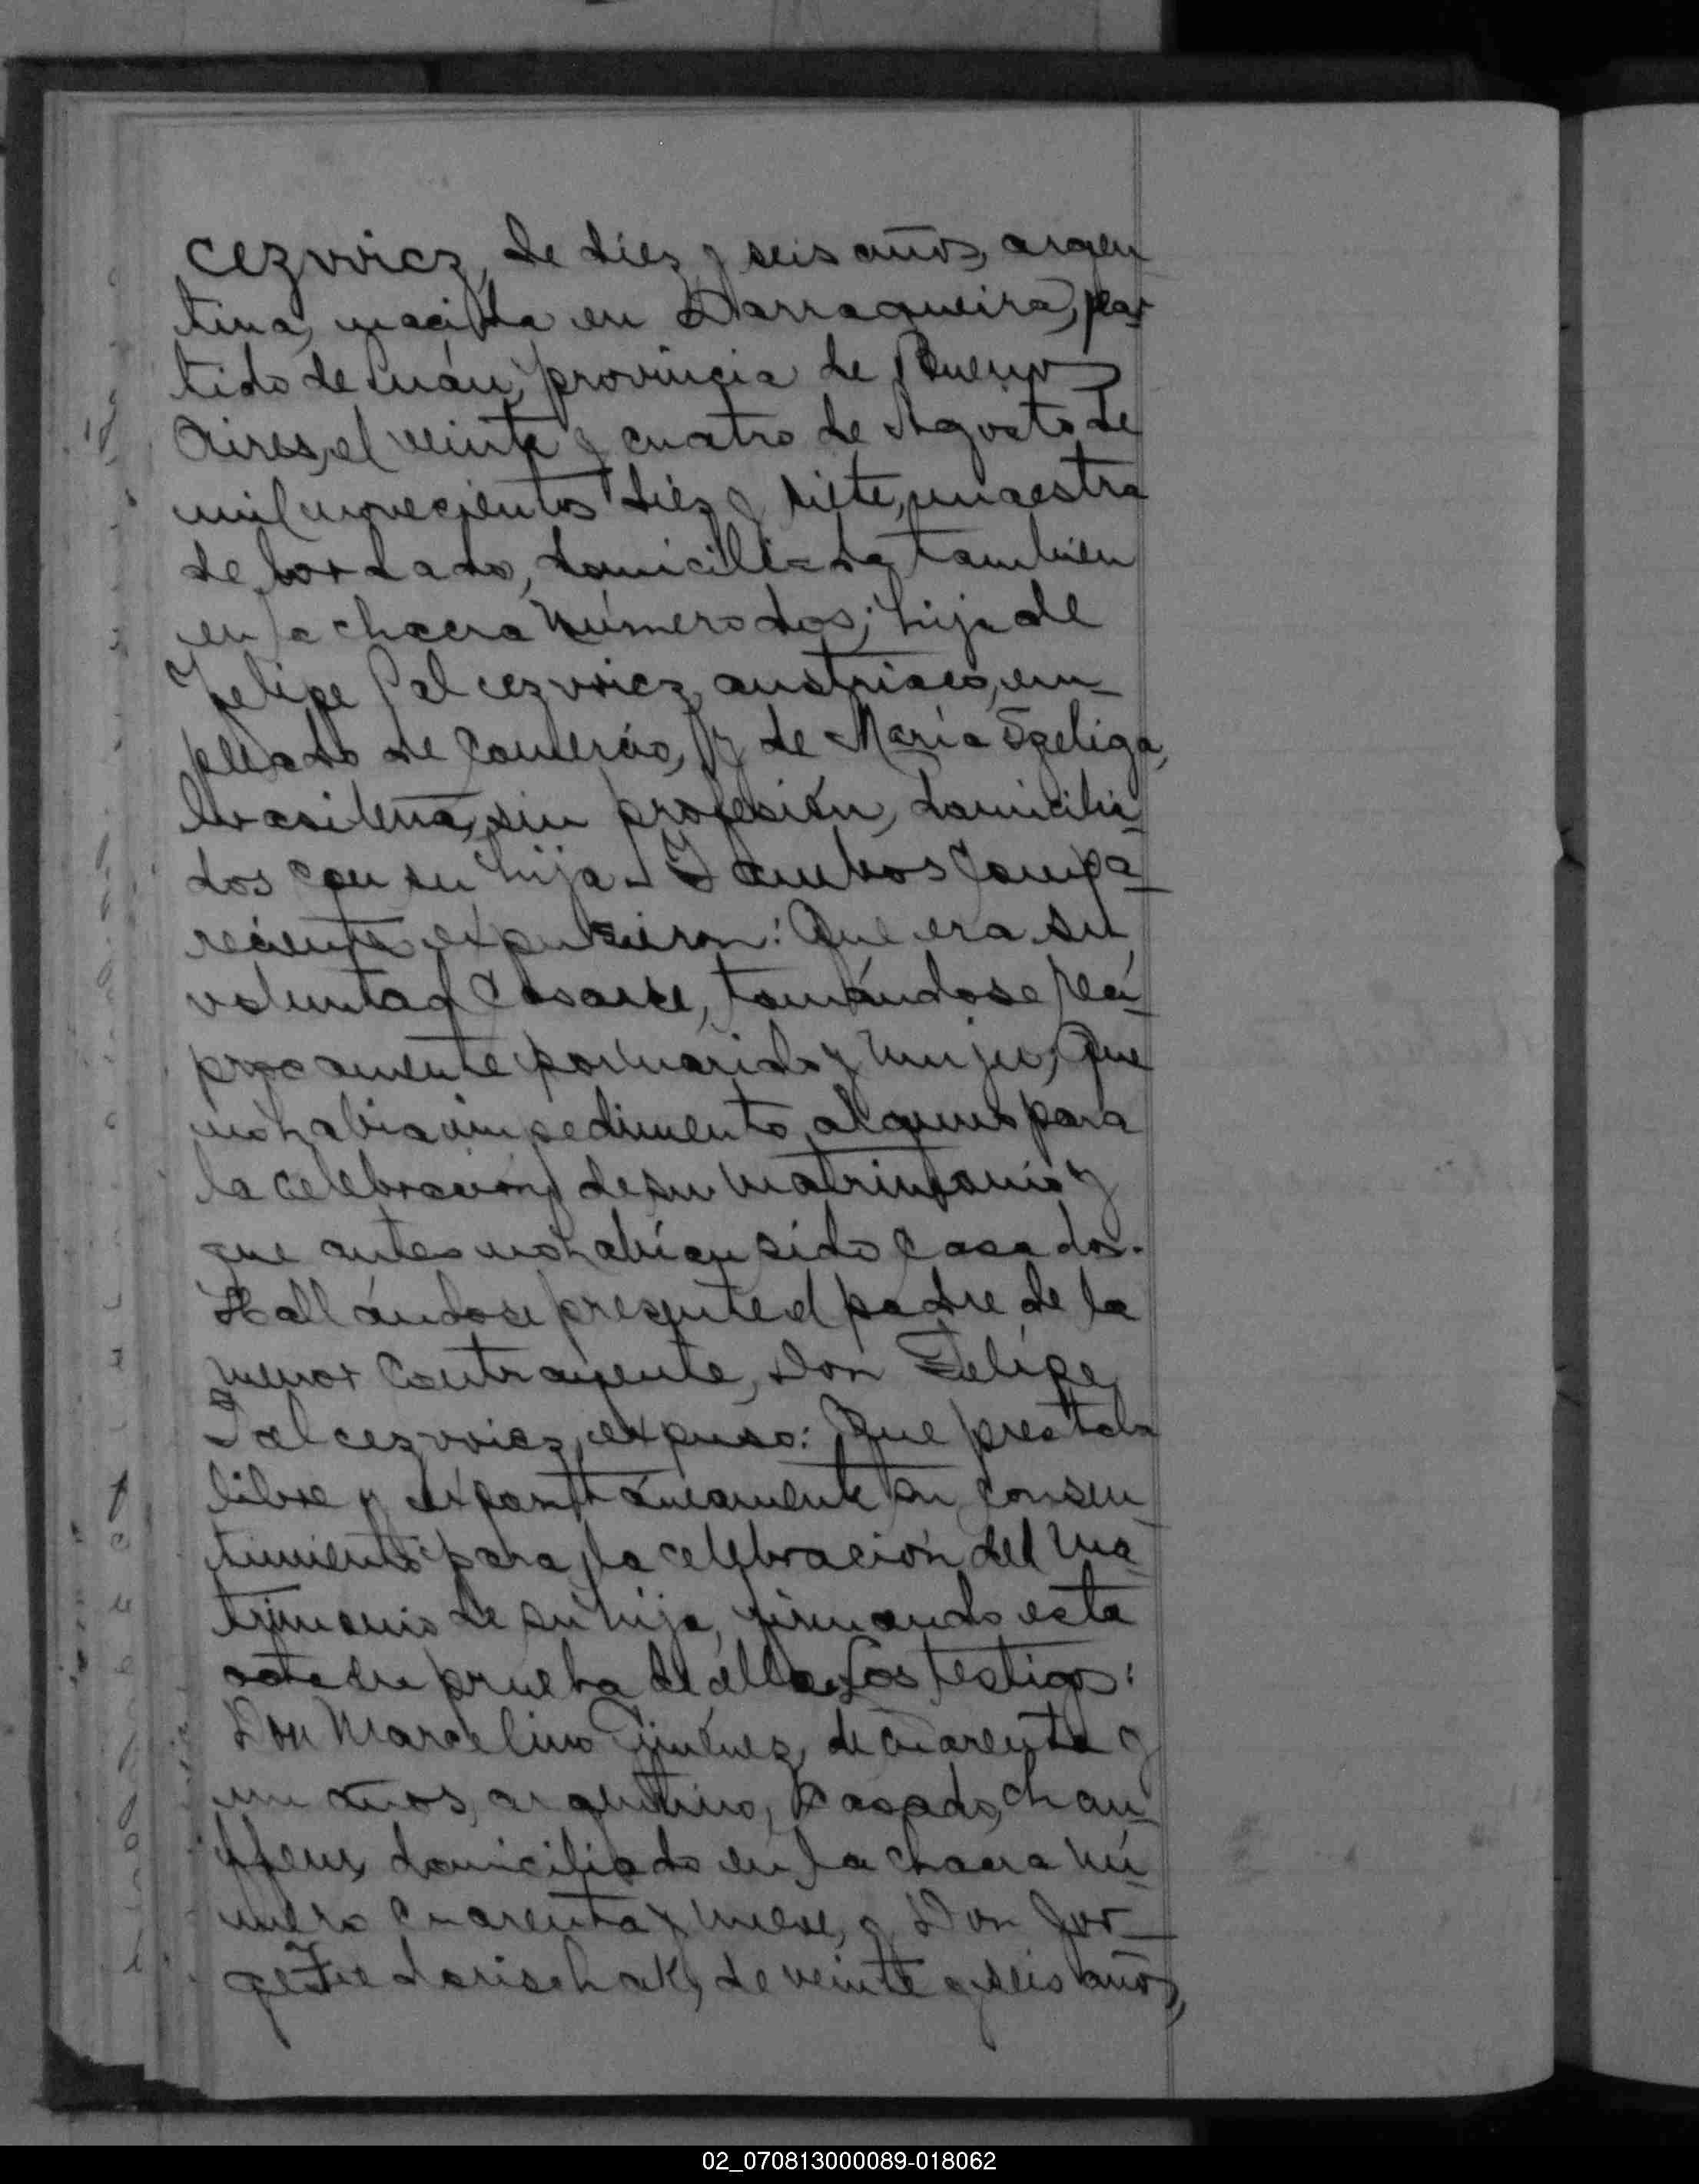 cezwicz, de diez y seis años, argen
tina, nacida en Darraqueira, par
tido de Puán, provincia de Buenos
Aires, el veinte y cuatro de Agosto de
mil novecientos diez y siete, maestra
de bordado, domiciliada tambien
en la chacra número dos; hija de
Felipe Palcezwicz, austriaco, em-
pleado de Comercio, y de María Szeliga,
brasileña, sin profesión, domicilia-
dos con su hija.- Y ambos Compa-
recientes expusieron: Que era su
voluntad Casarse, tomándose recí-
procamente por marido y mujer; Que
no habia impedimento alguno para
la celebración de su matrimonio y
que antes no habían sido casados.
Hallándose presente el padre de la
menor Contrayente, Don Felipe
Palcezwicz, expuso: Que prestaba
libre y expontáneamente su consen-
timiento para la celebración del ma-
trimonio de su hija, firmando esta
acta en prueba de ello. Los testigos:
Don Marcelino Jiménez, de cuarenta y
un años, argentino, casado, chau-
ffeur, domiciliado en la chacra nú-
mero cuarenta y nueve, y Don Jor-
ge Fedorischak, de veinte y seis años,
02_070813000089-018062